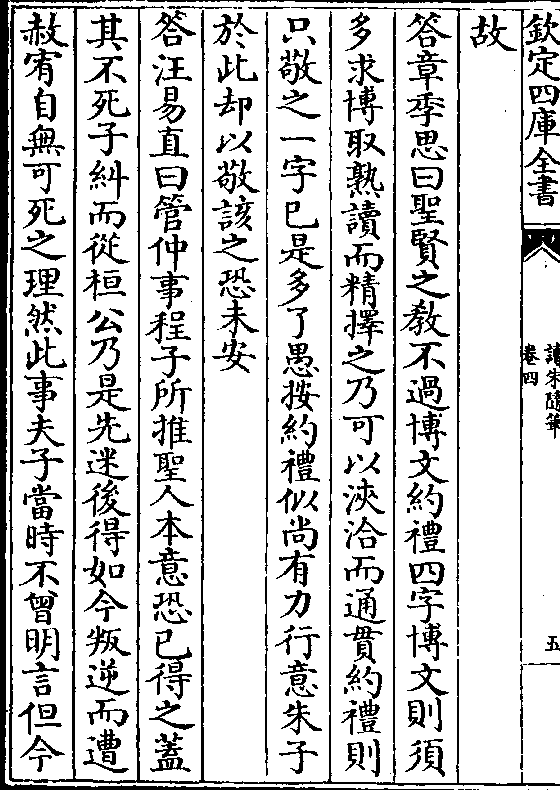 欽定四庫全書
讀朱隨筆
卷四
五
故
答章季思曰聖賢之教不過博文約禮四字博文則須
多求博取熟讀而精擇之乃可以浹洽而通貫約禮則
只敬之一字已是多了愚按約禮似尚有力行意朱子
於此却以敬該之恐未安
答汪易直曰管仲事程子所推聖人本意恐已得之蓋
其不死子糾而從桓公乃是先迷後得如今叛逆而遭
赦宥自無可死之理然此事夫子當時不曾明言但今